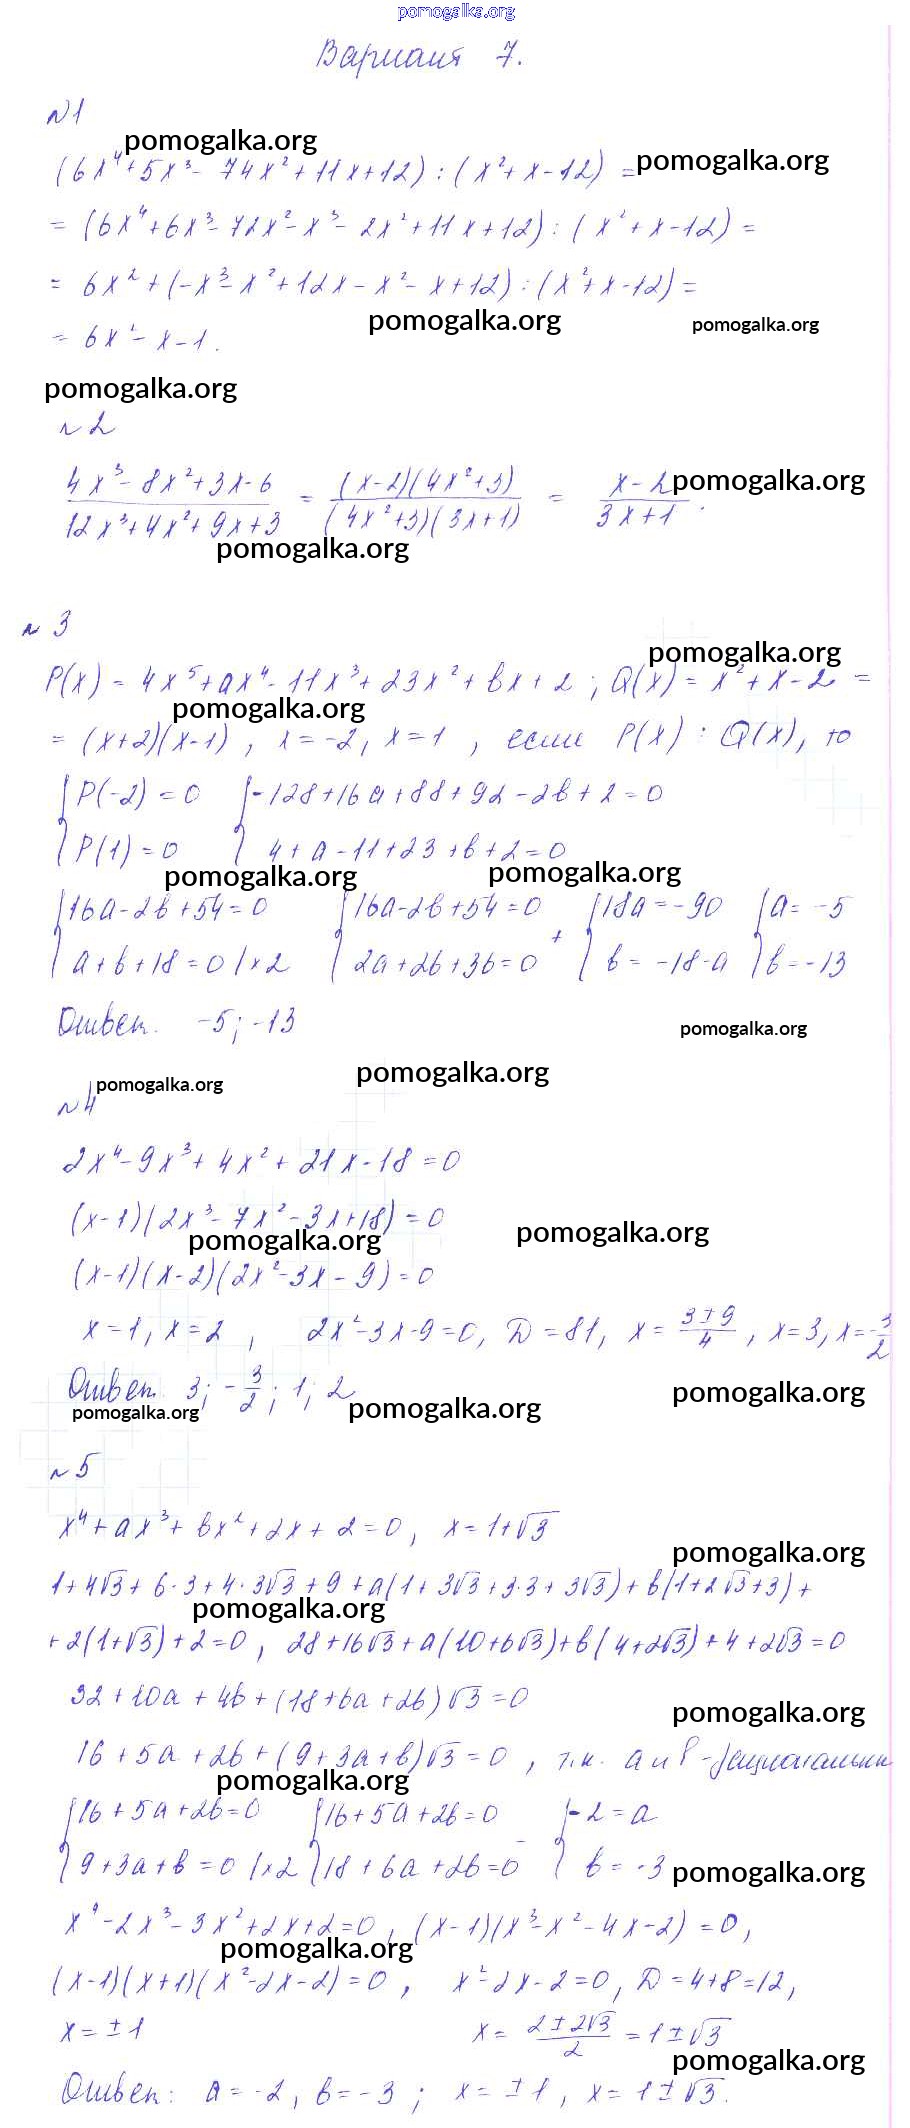 pomogalka.org
Вариант 7.
№1
pomogalka.org
(6x⁴+5x³-74x²+11x+12):(x²+x-12) =
pomogalka.org
= (6x⁴+6x³-72x²-x³-2x²+11x+12):(x²+x-12) =
= 6x²+(-x³-x²+12x-x²-x+12):(x²+x-12) =
pomogalka.org pomogalka.org
= 6x²-x-1.
pomogalka.org
№2
(4x³-8x²+3x-6)/(12x³+4x²+9x+3) = ((x-2)(4x²+3))/((4x²+3)(3x+1)) = (x-2)/(3x+1).
pomogalka.org
pomogalka.org
№3
pomogalka.org
P(x) = 4x⁵+ax⁴-11x³+23x²+bx+2; Q(x) = x²+x-2 =
pomogalka.org
= (x+2)(x-1), x=-2, x=1, если P(x) : Q(x), то
{P(-2)=0 {-128+16a+88+92-2b+2=0
{P(1)=0 { 4+a-11+23+b+2=0
pomogalka.org pomogalka.org
{16a-2b+54=0 {16a-2b+54=0 {18a=-90 {a=-5
{a+b+18=0 |×2 {2a+2b+36=0 + {b=-18-a {b=-13
Ответ. -5; -13
pomogalka.org
pomogalka.org
pomogalka.org
№4
2x⁴-9x³+4x²+21x-18=0
(x-1)(2x³-7x²-3x+18)=0
pomogalka.org pomogalka.org
(x-1)(x-2)(2x²-3x-9)=0
x=1, x=2, 2x²-3x-9=0, D=81, x=(3±9)/4, x=3, x=-3/2
Ответ. 3; -3/2; 1; 2
pomogalka.org
pomogalka.org pomogalka.org
№5
x⁴+ax³+bx²+2x+2=0, x=1+√3
pomogalka.org
1+4√3+6·3+4·3√3+9+a(1+3√3+3·3+3√3)+b(1+2√3+3)+
pomogalka.org
+2(1+√3)+2=0, 28+16√3+a(10+6√3)+b(4+2√3)+4+2√3=0
32+10a+4b+(18+6a+2b)√3=0
pomogalka.org
16+5a+2b+(9+3a+b)√3=0, т.к. a и b-рациональны
pomogalka.org
{16+5a+2b=0 {16+5a+2b=0 {-2=a
{9+3a+b=0 |×2 {18+6a+2b=0 - {b=-3
pomogalka.org
x⁴-2x³-3x²+2x+2=0, (x-1)(x³-x²-4x-2)=0,
pomogalka.org
(x-1)(x+1)(x²-2x-2)=0, x²-2x-2=0, D=4+8=12,
x=±1 x=(2±2√3)/2=1±√3
pomogalka.org
Ответ: a=-2, b=-3; x=±1, x=1±√3.